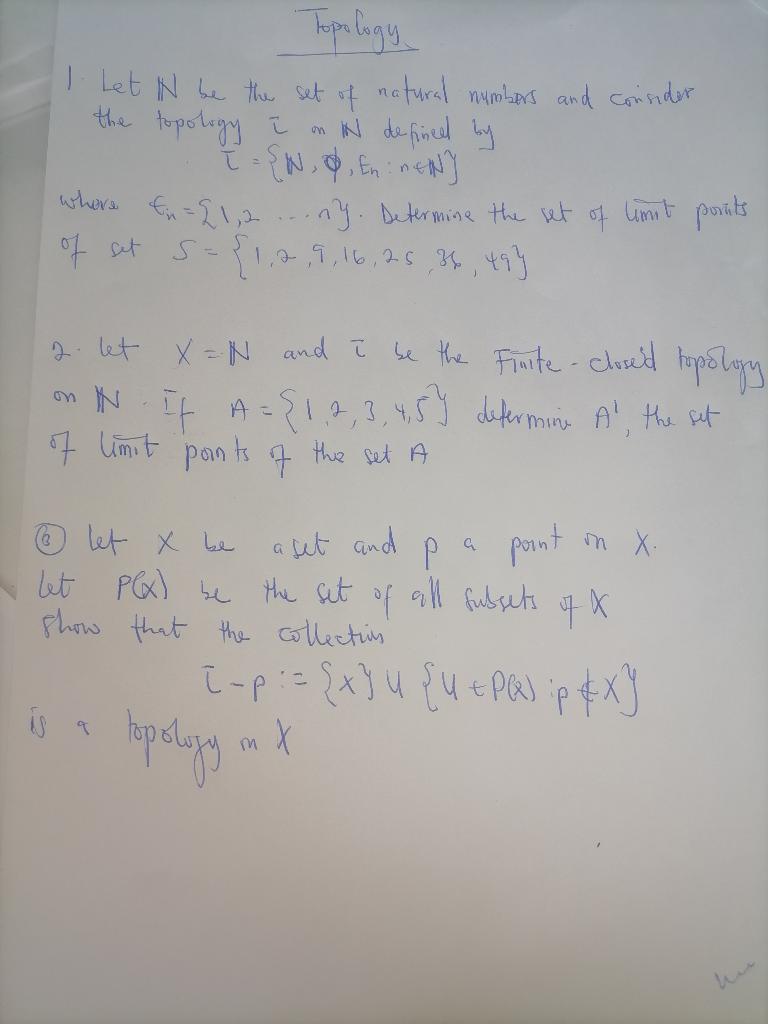 Topology
1. Let ℕ be the set of natural numbers and consider
the topology τ on ℕ defined by
τ = {ℕ, ∅, En : n ∈ ℕ}
where En = {1,2 ... n}. Determine the set of limit points
of set S = {1,2,9,16,25,36,49}
2. let X = ℕ and τ be the Finite-closed topology
on ℕ. If A = {1,2,3,4,5} determine A', the set
of limit points of the set A
③ let X be a set and p a point in X.
Let P(X) be the set of all subsets of X
show that the collection
τ-p := {X} ∪ {U ∈ P(X) : p ∉ X}
is a topology on X